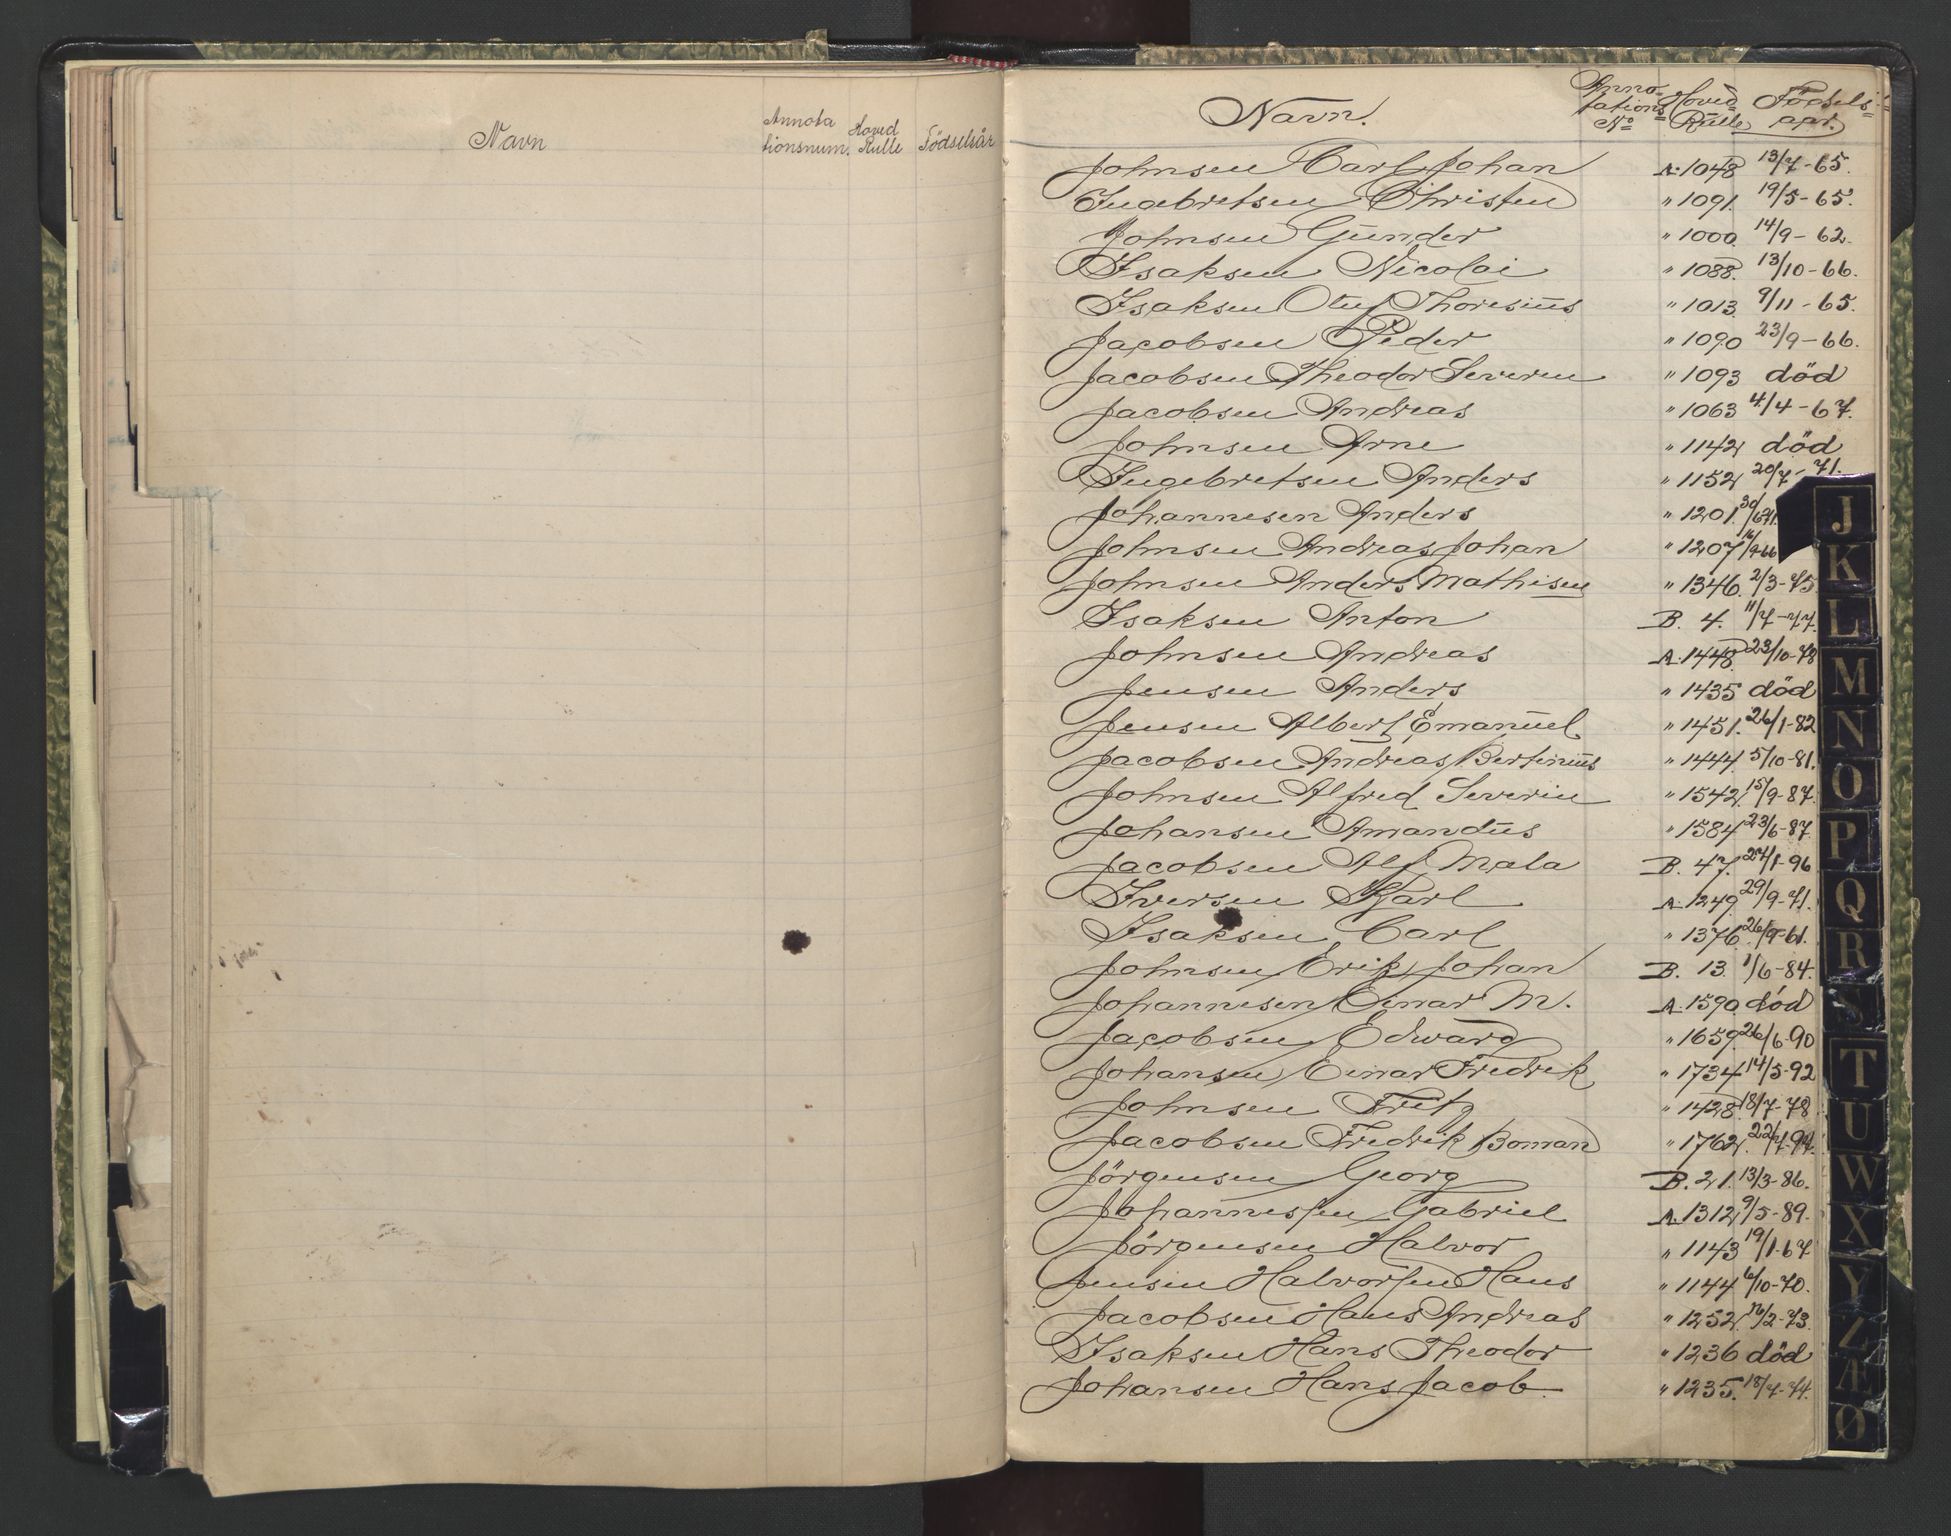 Navn
Annota
tionsnum.
Hoved
Rulle
Födselsår
Navn.
Anno-
tations
No
Hoved
Rulle
Födsels-
aar.
Johnsen Carl Johan A. 1048 13/7-65.
Ingebretsen Christen " 1091. 19/5-65.
Johnsen Gunder " 1000. 14/9-62.
Isaksen Nicolai " 1088. 13/10-66.
Isaksen Oluf Thoresius " 1013. 9/11-65.
Jacobsen Peder " 1090 23/9-66.
Jacobsen Theodor Severin " 1093 död
Jacobsen Andreas " 1063 4/4-67.
Johnsen Arne " 1142 död
Ingebretsen Anders " 1152 20/7-71.
Johannesen Anders " 1201. 30/6-71.
Johnsen Andreas Johan " 1207 16/9-66
Johnsen Anders Mathisen " 1346. 2/3-75.
Isaksen Anton B. 4. 11/7-77.
Johnsen Andreas A. 1448. 23/10-78
Jensen Anders " 1435 död
Jensen Albert Emanuel " 1451. 26/1-82
Jacobsen Andreas Bertinius " 1444. 5/10-81.
Johnsen Alfred Severin " 1542. 15/9-87.
Johansen Amandus " 1584 23/6-87.
Jacobsen Alf Mala B. 47. 24/1-96
Iversen Karl A. 1249. 29/9-71.
Isaksen Carl " 1376. 26/9-61.
Johnsen Erik Johan B. 13. 1/6-84.
Johannesen Einar M. A. 1590 död
Jacobsen Edward " 1659. 26/6-90
Johansen Einar Fredrik " 1734 14/5-92
Johnsen Fritz " 1428. 18/7-78.
Jacobsen Fredrik Boman " 1762. 22/7-94.
Jörgensen Georg B. 21. 13/3-86.
Johannessen Gabriel A. 1312 9/5-89.
Jörgensen Halvor " 1143 19/1-67
Jensen Halvorsen Hans " 1144 6/10-70.
Jacobsen Hans Andreas " 1252. 16/2-73.
Isaksen Hans Theodor " 1236 död
Johansen Hans Jacob. " 1235. 18/7-74.
J
K
L
M
N
O
P
Q
R
S
T
U
W
X
Y
Z
Æ
Ø